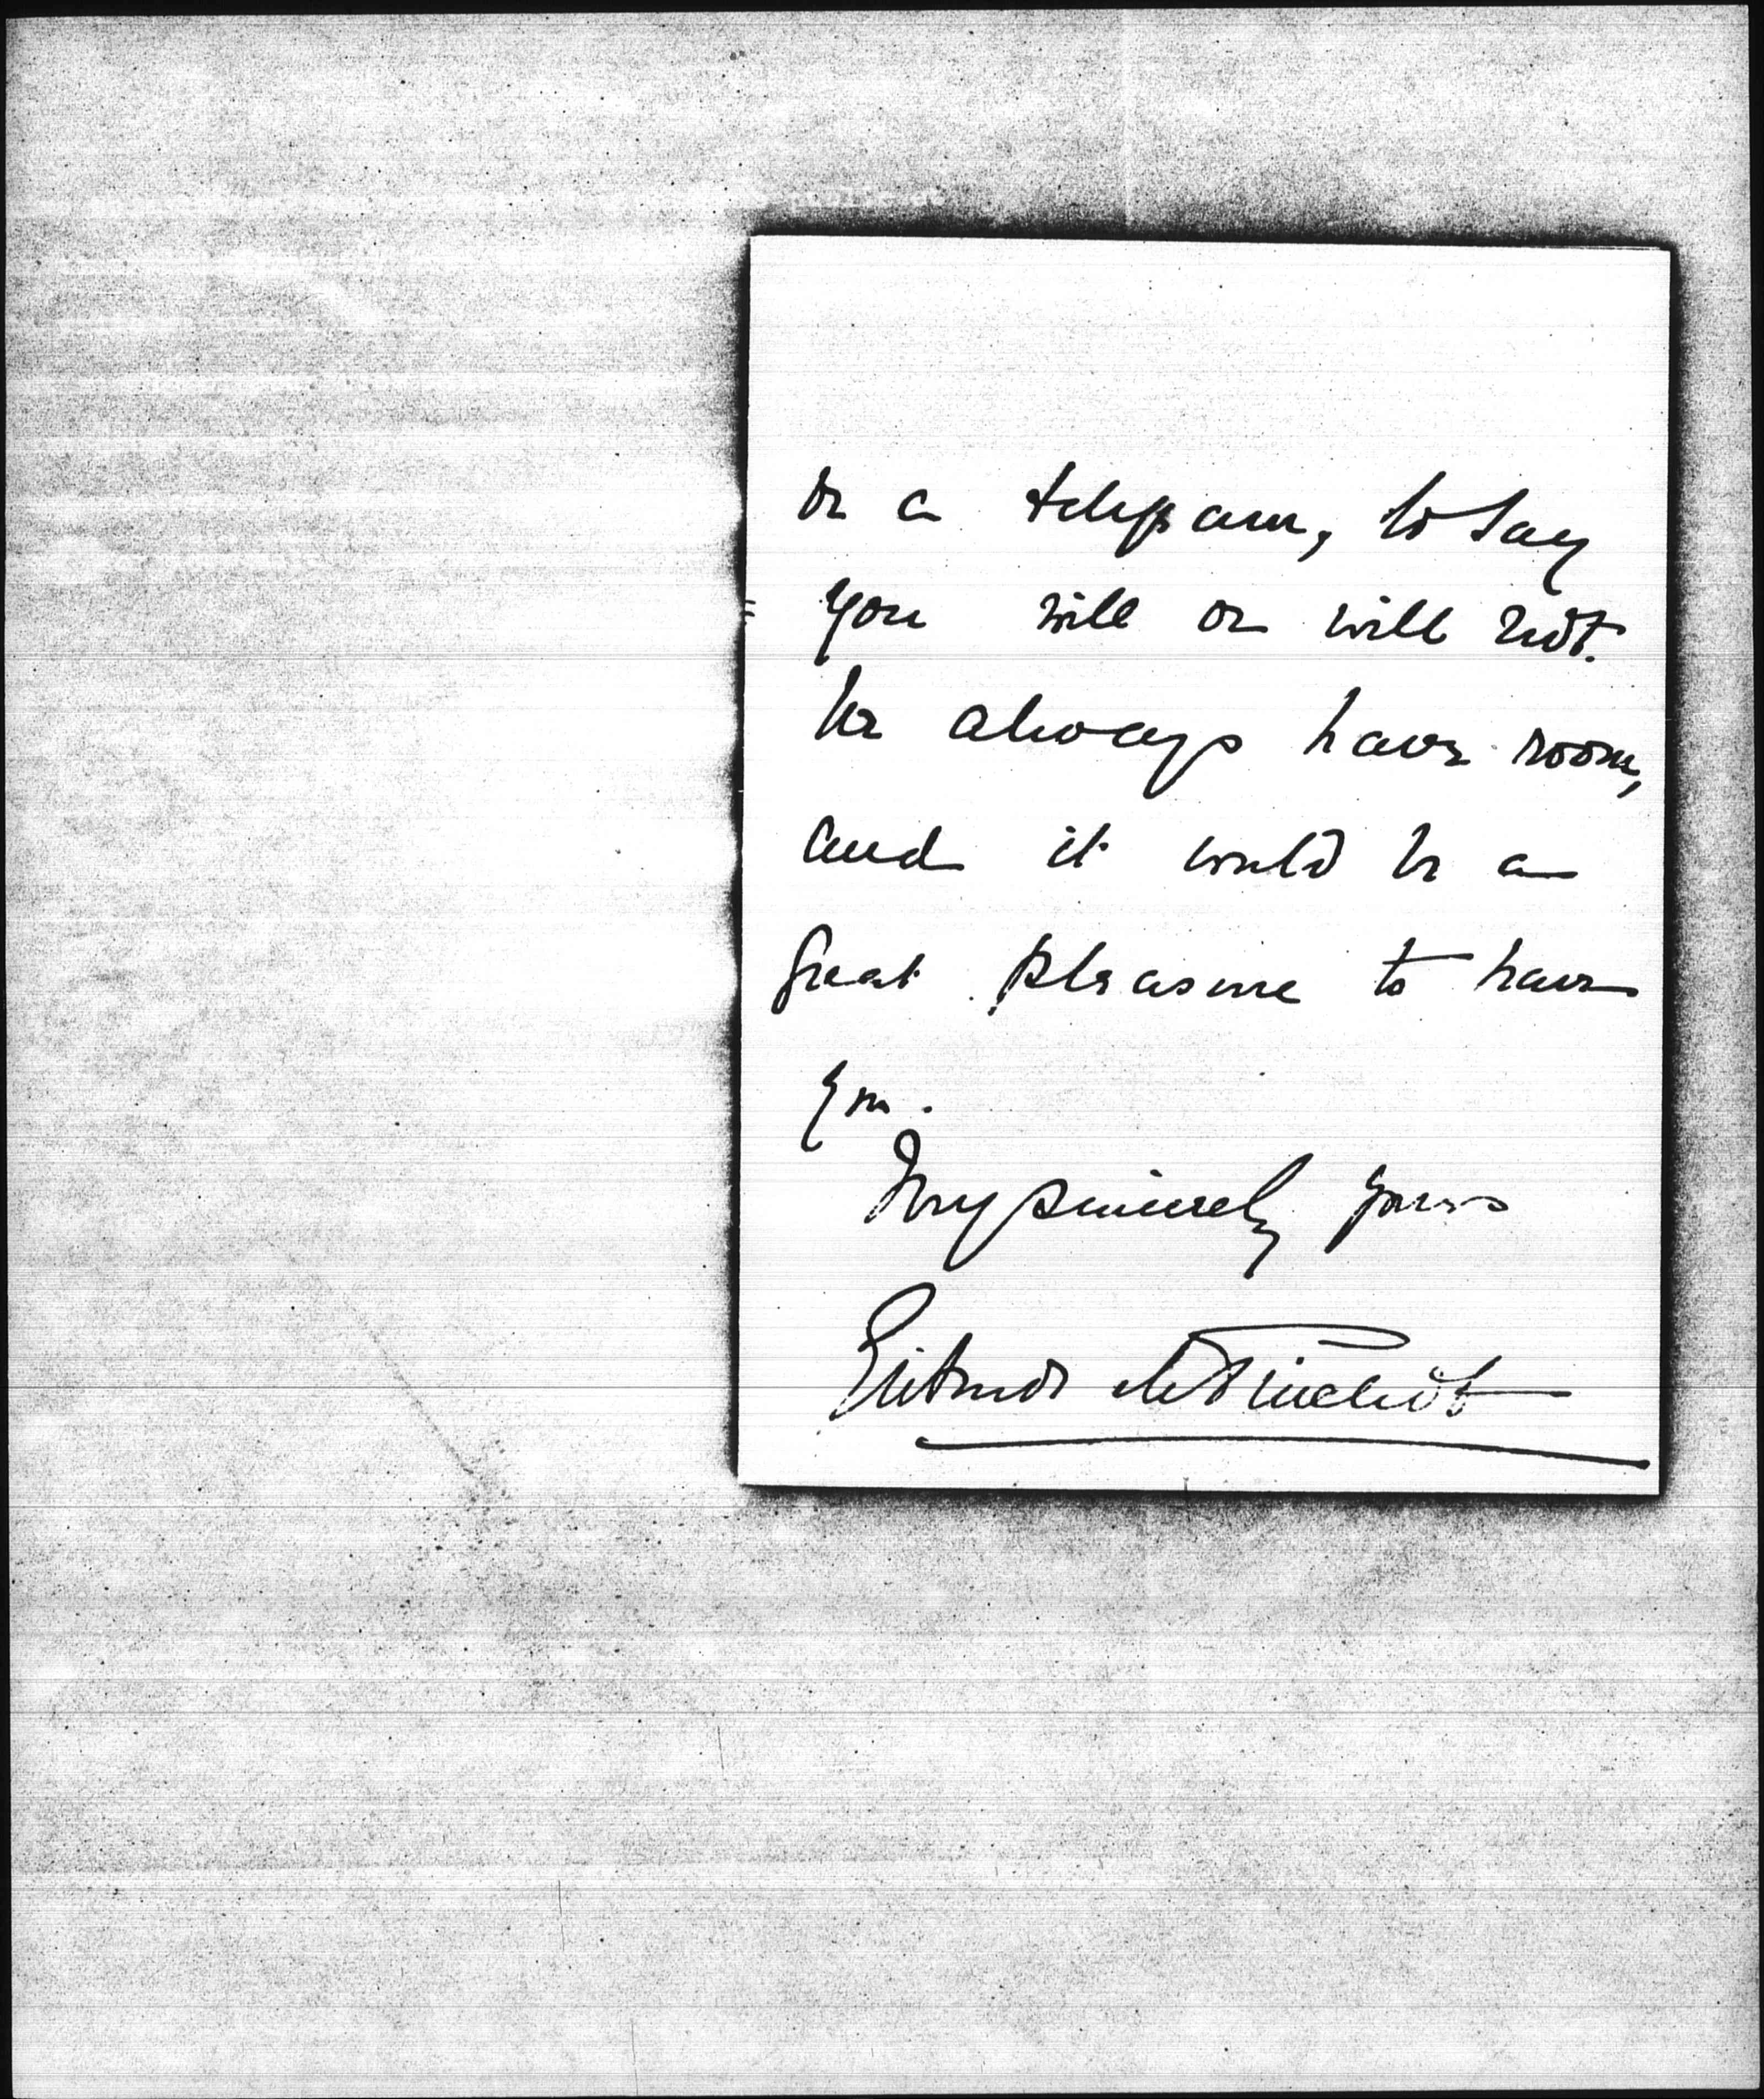 or a telegram, to say
you will or will not.
We always have room,
and it would be a
great pleasure to have
you.
Very sincerely yours
Gertrude